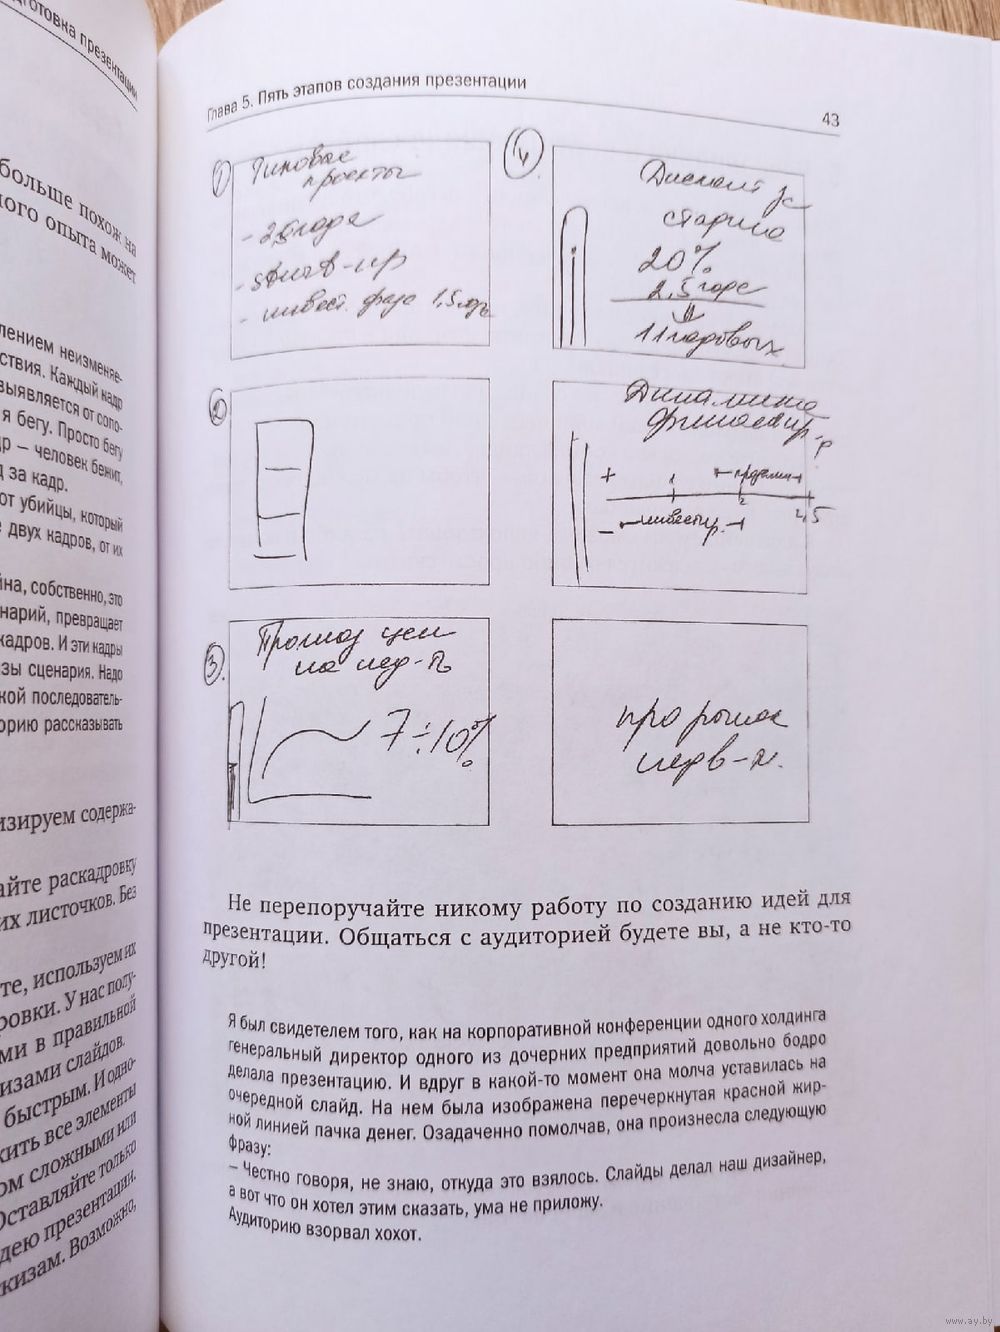 больше похож на
ного опыта может
лением неизменяе-
ствия. Каждый кадр
выявляется от сопо-
я бегу. Просто бегу
др — человек бежит,
д за кадр.
от убийцы, который
е двух кадров, от их
йна, собственно, это
нарий, превращает
кадров. И эти кадры
зы сценария. Надо
кой последователь-
орию рассказывать
изируем содержа-
айте раскадровку
их листочков. Без
те, используем их
ровки. У нас полу-
ми в правильной
изами слайдов.
быстрым. И одно-
жить все элементы
ом сложными или
Оставляйте только
дею презентации.
кизам. Возможно,
Глава 5. Пять этапов создания презентации
43
1
Типовые
проекты
- 2,5 года
- start-up
- инвест. фаза 1,5 года
4.
Дисконт за
старика
20%
2,5 года
11 годовых
2
Динамика
финансир-я
+ 1 2 2,5
- инвестир.
продажи
3.
Прогноз цен
на нед-ть
7÷10%
про рынок
перв-й.
Не перепоручайте никому работу по созданию идей для
презентации. Общаться с аудиторией будете вы, а не кто-то
другой!
Я был свидетелем того, как на корпоративной конференции одного холдинга
генеральный директор одного из дочерних предприятий довольно бодро
делала презентацию. И вдруг в какой-то момент она молча уставилась на
очередной слайд. На нем была изображена перечеркнутая красной жир-
ной линией пачка денег. Озадаченно помолчав, она произнесла следующую
фразу:
– Честно говоря, не знаю, откуда это взялось. Слайды делал наш дизайнер,
а вот что он хотел этим сказать, ума не приложу.
Аудиторию взорвал хохот.
www.ay.by